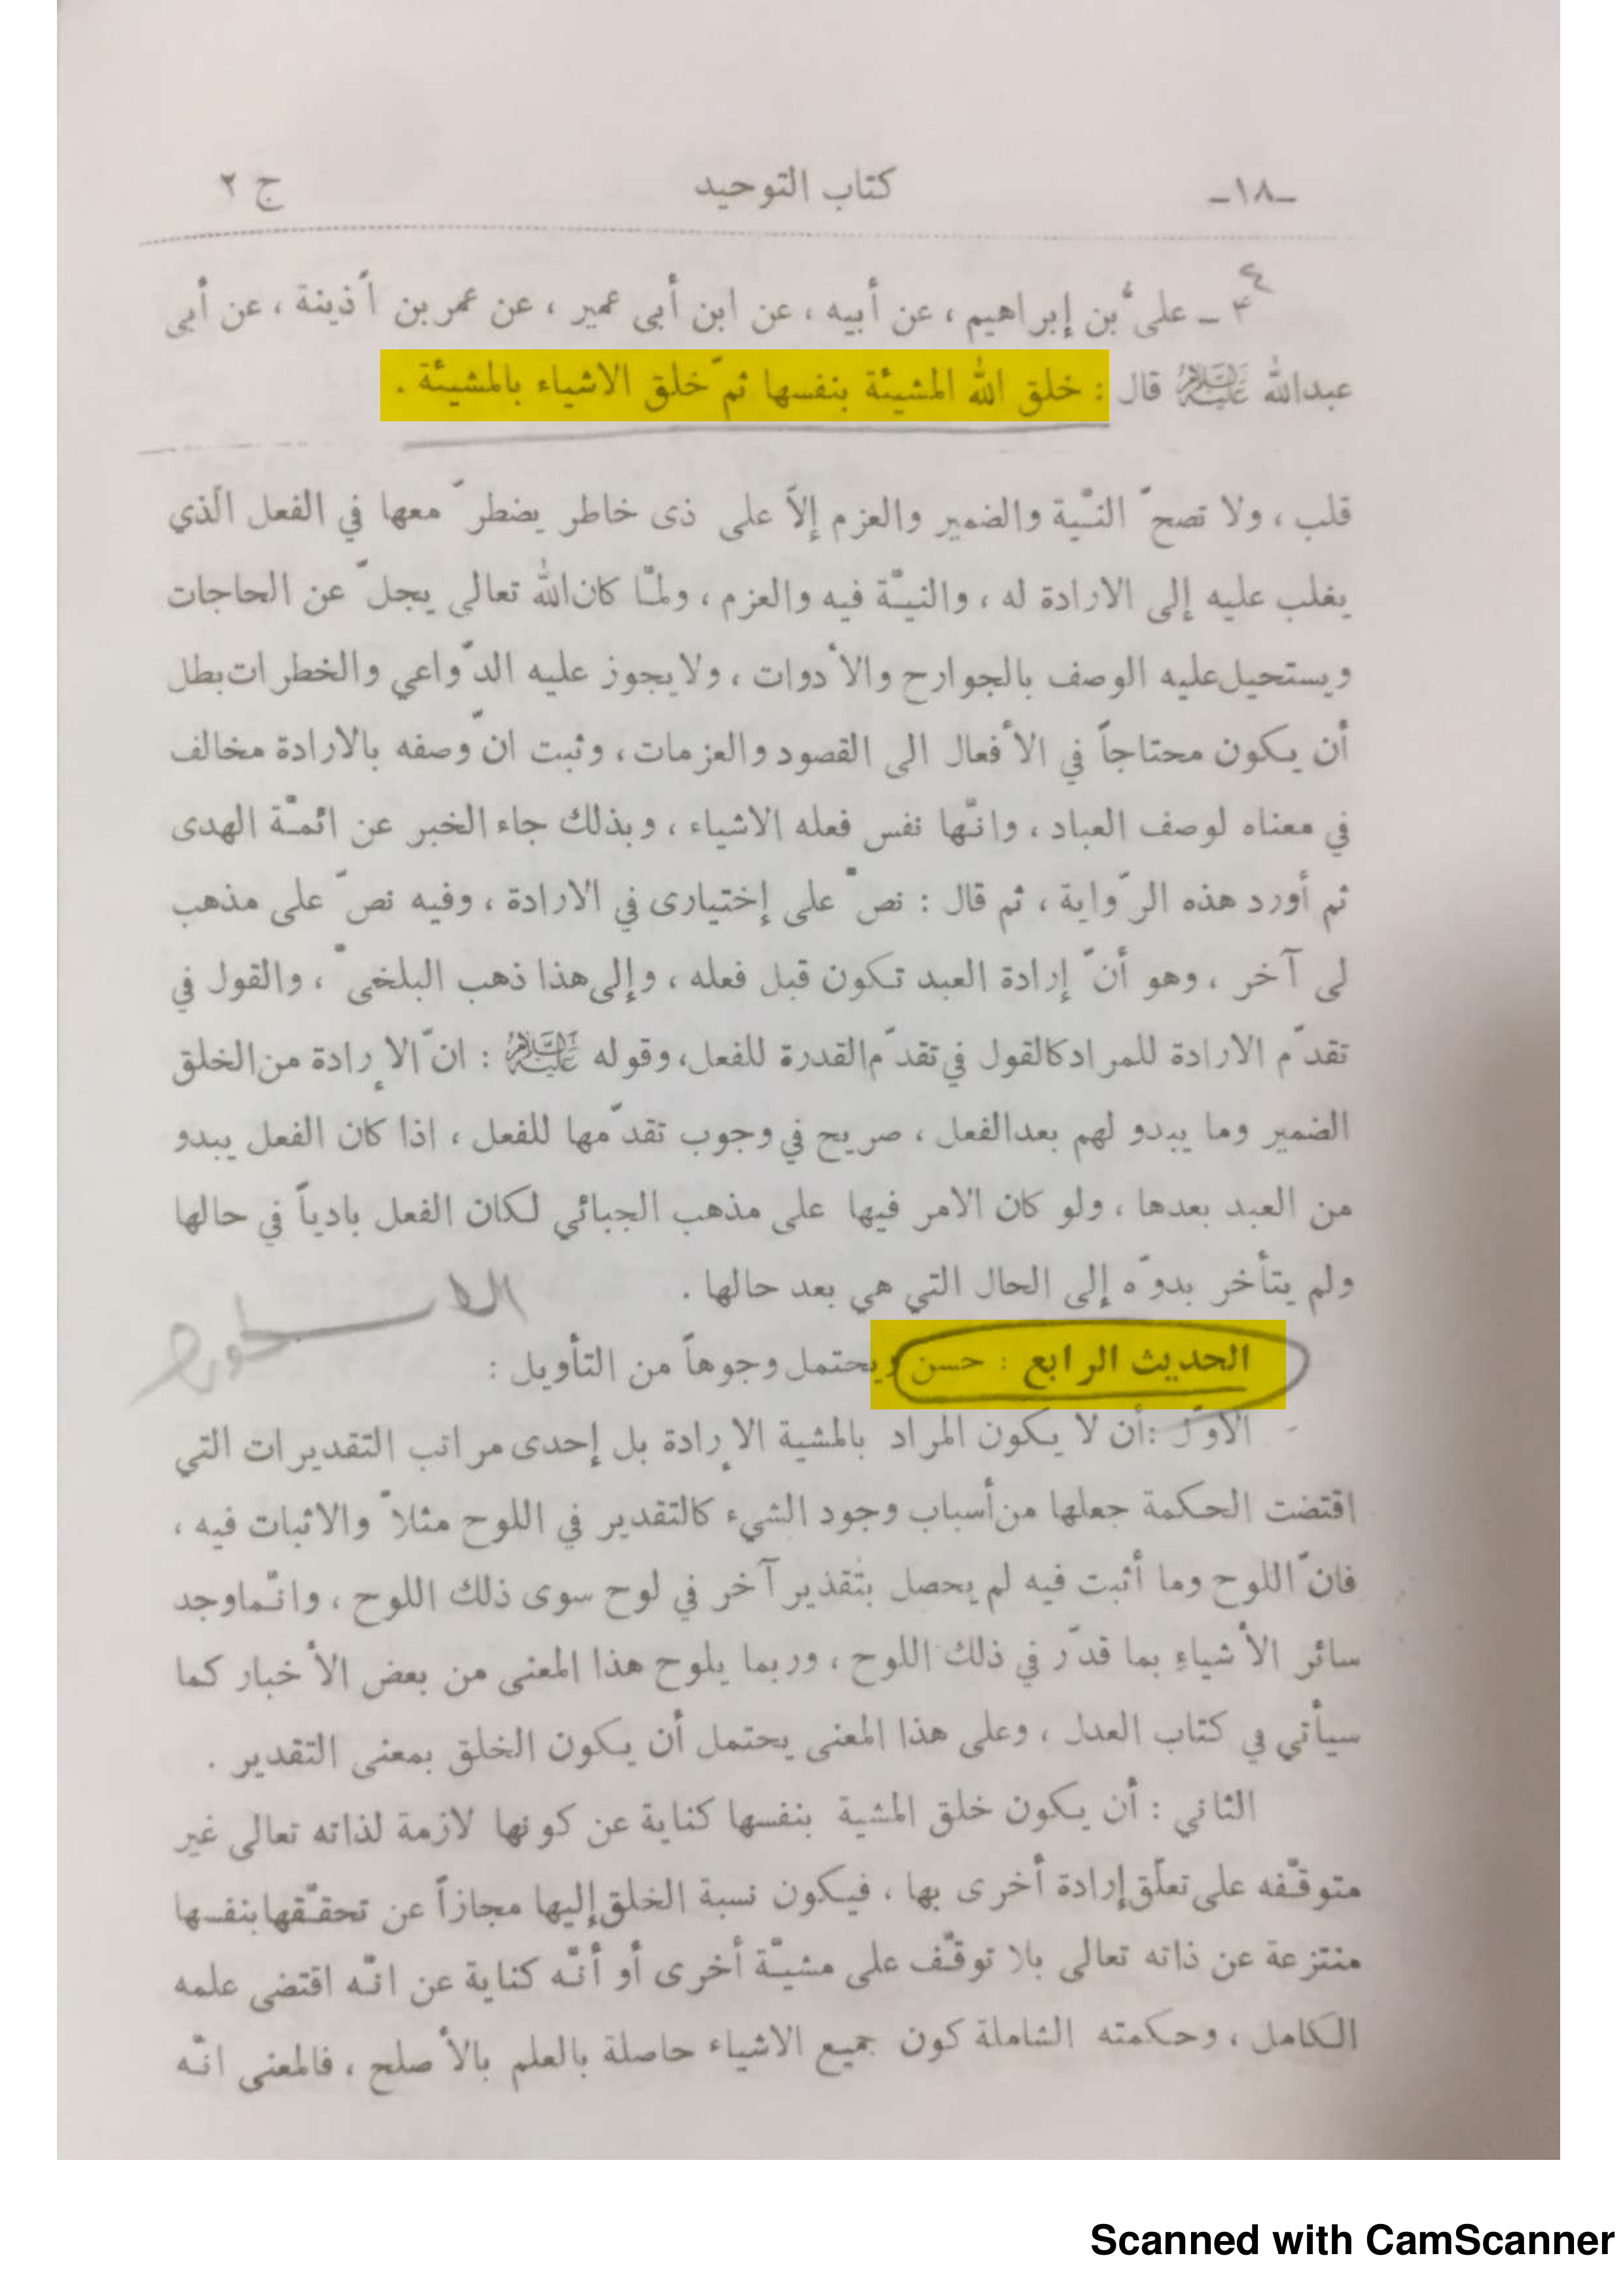 -١٨- كتاب التوحيد ج ٢
٤
٣ ـ علىُّ بن إبراهيم ، عن أبيه ، عن ابن أبى عمير ، عن عمربن اُذينة ، عن أبى
عبدالله عَلَيْهِ السَّلَام قال : خلق الله المشيئة بنفسها ثمّ خلق الاشياء بالمشيئة .
قلب ، ولا تصحّ النيّة والضمير والعزم إلاّ على ذى خاطر يضطرّ معها في الفعل الّذي
يغلب عليه إلى الارادة له ، والنيّة فيه والعزم ، ولمّا كان الله تعالى يجلّ عن الحاجات
ويستحيل عليه الوصف بالجوارح والأدوات ، ولايجوز عليه الدّواعي والخطرات بطل
أن يكون محتاجاً في الأفعال الى القصود والعزمات ، وثبت انّ وصفه بالارادة مخالف
في معناه لوصف العباد ، وانّها نفس فعله الاشياء ، وبذلك جاء الخبر عن ائمّة الهدى
ثم أورد هذه الرّواية ، ثم قال : نصّ على إختيارى في الارادة ، وفيه نصّ على مذهب
لى آخر ، وهو أنّ إرادة العبد تكون قبل فعله ، وإلى هذا ذهب البلخىّ ، والقول في
تقدّم الارادة للمراد كالقول في تقدّم القدرة للفعل، وقوله عَلَيْهِ السَّلَام : انّ الإرادة من الخلق
الضمير وما يبدو لهم بعدالفعل ، صريح في وجوب تقدّمها للفعل ، اذا كان الفعل يبدو
من العبد بعدها ، ولو كان الامر فيها على مذهب الجبائي لكان الفعل بادياً في حالها
ولم يتأخر بدوّه إلى الحال التي هي بعد حالها .
الحديث الرابع : حسن ويحتمل وجوهاً من التأويل :
الاوّل :أن لا يكون المراد بالمشية الإرادة بل إحدى مراتب التقديرات التي
اقتضت الحكمة جعلها من أسباب وجود الشيء كالتقدير في اللوح مثلاً والاثبات فيه ،
فانّ اللوح وما أثبت فيه لم يحصل بتقدير آخر في لوح سوى ذلك اللوح ، وانّما وجد
سائر الأشياءِ بما قدّر في ذلك اللوح ، وربما يلوح هذا المعنى من بعض الأخبار كما
سيأتي في كتاب العدل ، وعلى هذا المعنى يحتمل أن يكون الخلق بمعنى التقدير .
الثاني : أن يكون خلق المشية بنفسها كناية عن كونها لازمة لذاته تعالى غير
متوقّفه على تعلّق إرادة أخرى بها ، فيكون نسبة الخلق إليها مجازاً عن تحقّقها بنفسها
منتزعة عن ذاته تعالى بلا توقّف على مشيّة أخرى أو أنّه كناية عن انّه اقتضى علمه
الكامل ، وحكمته الشاملة كون جميع الاشياء حاصلة بالعلم بالأصلح ، فالمعنى انّه
Scanned with CamScanner